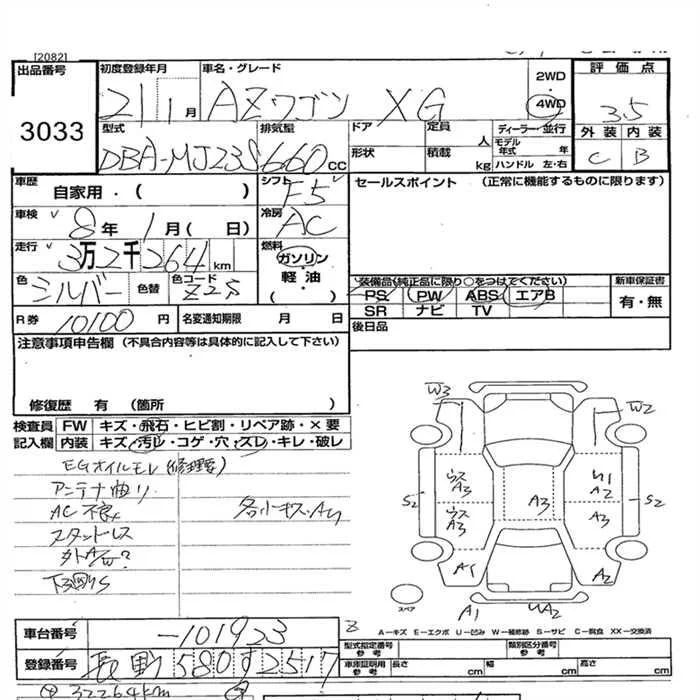 [2082]
出品番号
3033
初度登録年月 車名・グレード
21 1月 AZワゴン XG
2WD
・
4WD
評価点
3.5
外装 内装
C B
型式 排気量
DBA-MJ23S 660cc
ドア 定員 人
形状 積載 kg
ディーラー・並行
モデル年式 年
ハンドル 左・右
車歴
自家用・( )
シフト
F5
セールスポイント (正常に機能するものに限ります)
車検
8年 1月 ( 日)
冷房
AC
走行
3万2千264km
燃料
ガソリン
・
軽油
( )
色 シルバー 色替 色コード Z2S
装備品(純正品に限り○をつけてください)
PS PW ABS エアB
SR ナビ TV
新車保証書
有・無
R券 10100円 名変通知期限 月 日
後日品
注意事項申告欄 (不具合内容等は具体的に記入して下さい)
修復歴 有 (箇所 )
検査員記入欄
FW キズ・飛石・ヒビ割・リペア跡・×要
内装 キズ・汚レ・コゲ・穴・ズレ・キレ・破レ
EGオイルモレ(修理要)
アンテナ曲リ
AC不良
スタッドレス
下回りS
W3 W2
S2 S2
ウス A3
ウス A3
A3
A2
A3
A1 A2
スペア
A1 UA2
A-キズ E-エクボ U-凹み W-補修跡 S-サビ C-腐食 XX-交換済
車台番号 -101923
登録番号 580す2517
型式指定番号 参考 類別区分番号 参考
車庫証明用 参考 長さ cm 幅 cm 高さ cm
32264km